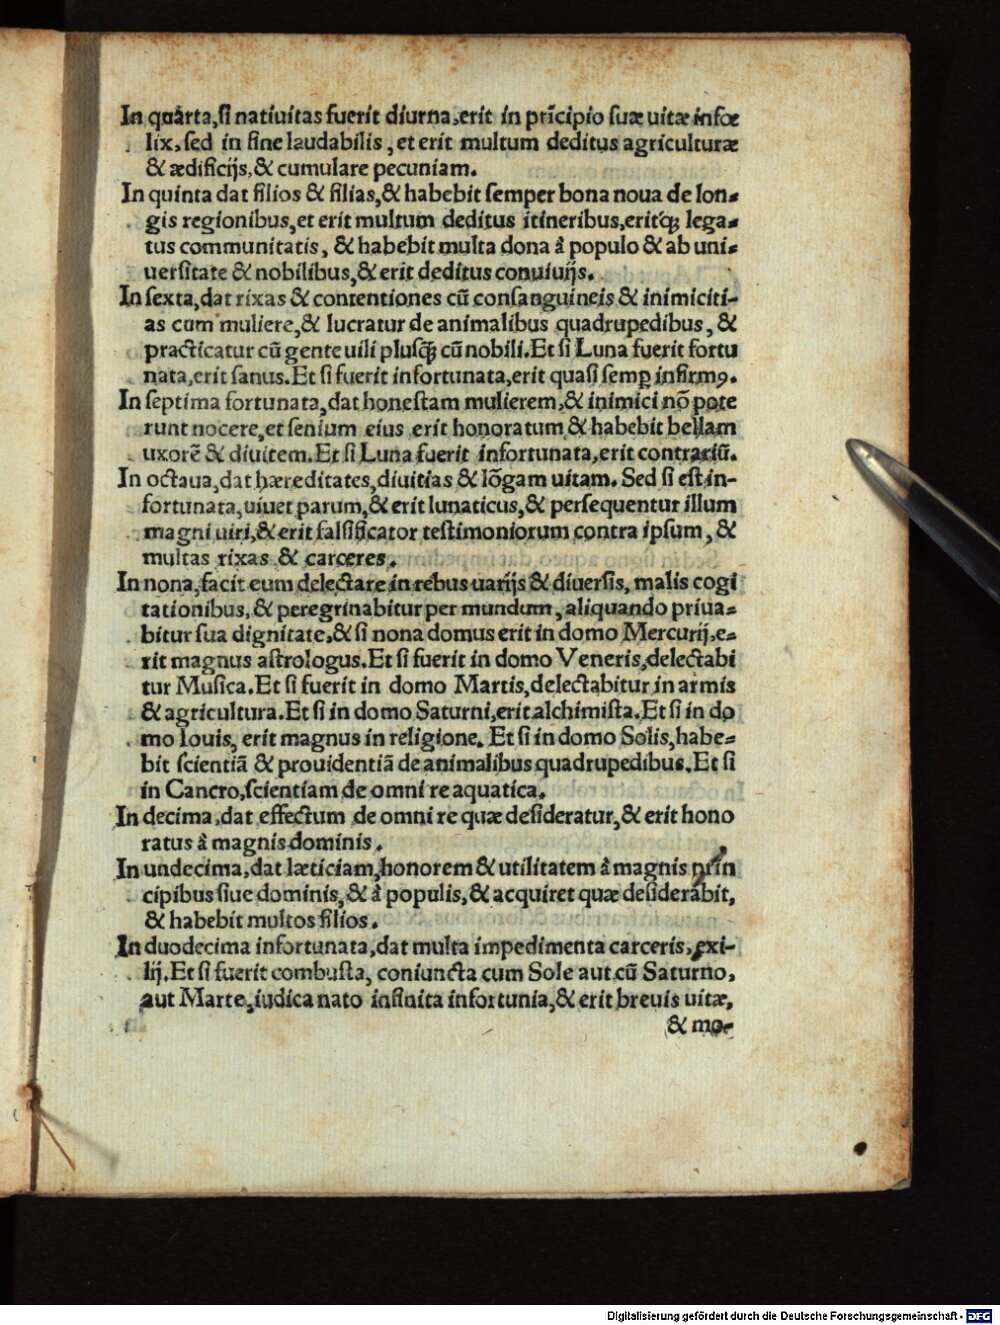 In quarta,ſi natiuitas fuerit diurna,erit in prīcipio ſuæ uitæ infœ
lix,ſed in fine laudabilis,et erit multum deditus agriculturæ
& ædificijs,& cumulare pecuniam.
In quinta dat filios & filias,& habebit ſemper bona noua de lon-
gis regionibus,et erit multum deditus itineribus,eritq́ꝫ lega-
tus communitatis, & habebit multa dona â populo & ab uni-
uerſitate & nobilibus,& erit deditus conuiuijs.
In ſexta,dat rixas & contentiones cū conſanguineis & inimiciti-
as cum muliere,& lucratur de animalibus quadrupedibus, &
practicatur cū gente uili pluſq̃ꝫ cū nobili.Et ſi Luna fuerit fortu
nata,erit ſanus.Et ſi fuerit infortunata,erit quaſi ſemꝑ infirmꝰ.
In ſeptima fortunata,dat honeſtam mulierem,& inimici nō pote
runt nocere,et ſenium eius erit honoratum,& habebit bellam
uxorē & diuitem.Et ſi Luna fuerit infortunata,erit contrariū.
In octaua,dat hæreditates,diuitias & lōgam uitam. Sed ſi eſt in-
fortunata,uiuet parum,& erit lunaticus,& perſequentur illum
magni uiri,& erit falſificator teſtimoniorum contra ipſum, &
multas rixas & carceres.
In nona,facit eum delectare in rebus uarijs & diuerſis, malis cogi
tationibus,& peregrinabitur per mundum, aliquando priua-
bitur ſua dignitate,& ſi nona domus erit in domo Mercurij,e-
rit magnus aſtrologus.Et ſi fuerit in domo Veneris,delectabi
tur Muſica.Et ſi fuerit in domo Martis,delectabitur in armis
& agricultura.Et ſi in domo Saturni,erit alchimiſta.Et ſi in do
mo Iouis, erit magnus in religione. Et ſi in domo Solis,habe-
bit ſcientiā & prouidentiā de animalibus quadrupedibus.Et ſi
in Cancro,ſcientiam de omni re aquatica.
In decima,dat effectum de omni re quæ deſideratur,& erit hono
ratus â magnis dominis.
In undecima,dat læticiam,honorem & utilitatem â magnis prin
cipibus ſiue dominis,& â populis,& acquiret quæ deſiderabit,
& habebit multos filios.
In duodecima infortunata,dat multa impedimenta carceris,exi-
lij.Et ſi fuerit combuſta, coniuncta cum Sole aut cū Saturno,
aut Marte,iudica nato infinita infortunia,& erit breuis uitæ,
& mo-
Digitalisierung gefördert durch die Deutsche Forschungsgemeinschaft - DFG